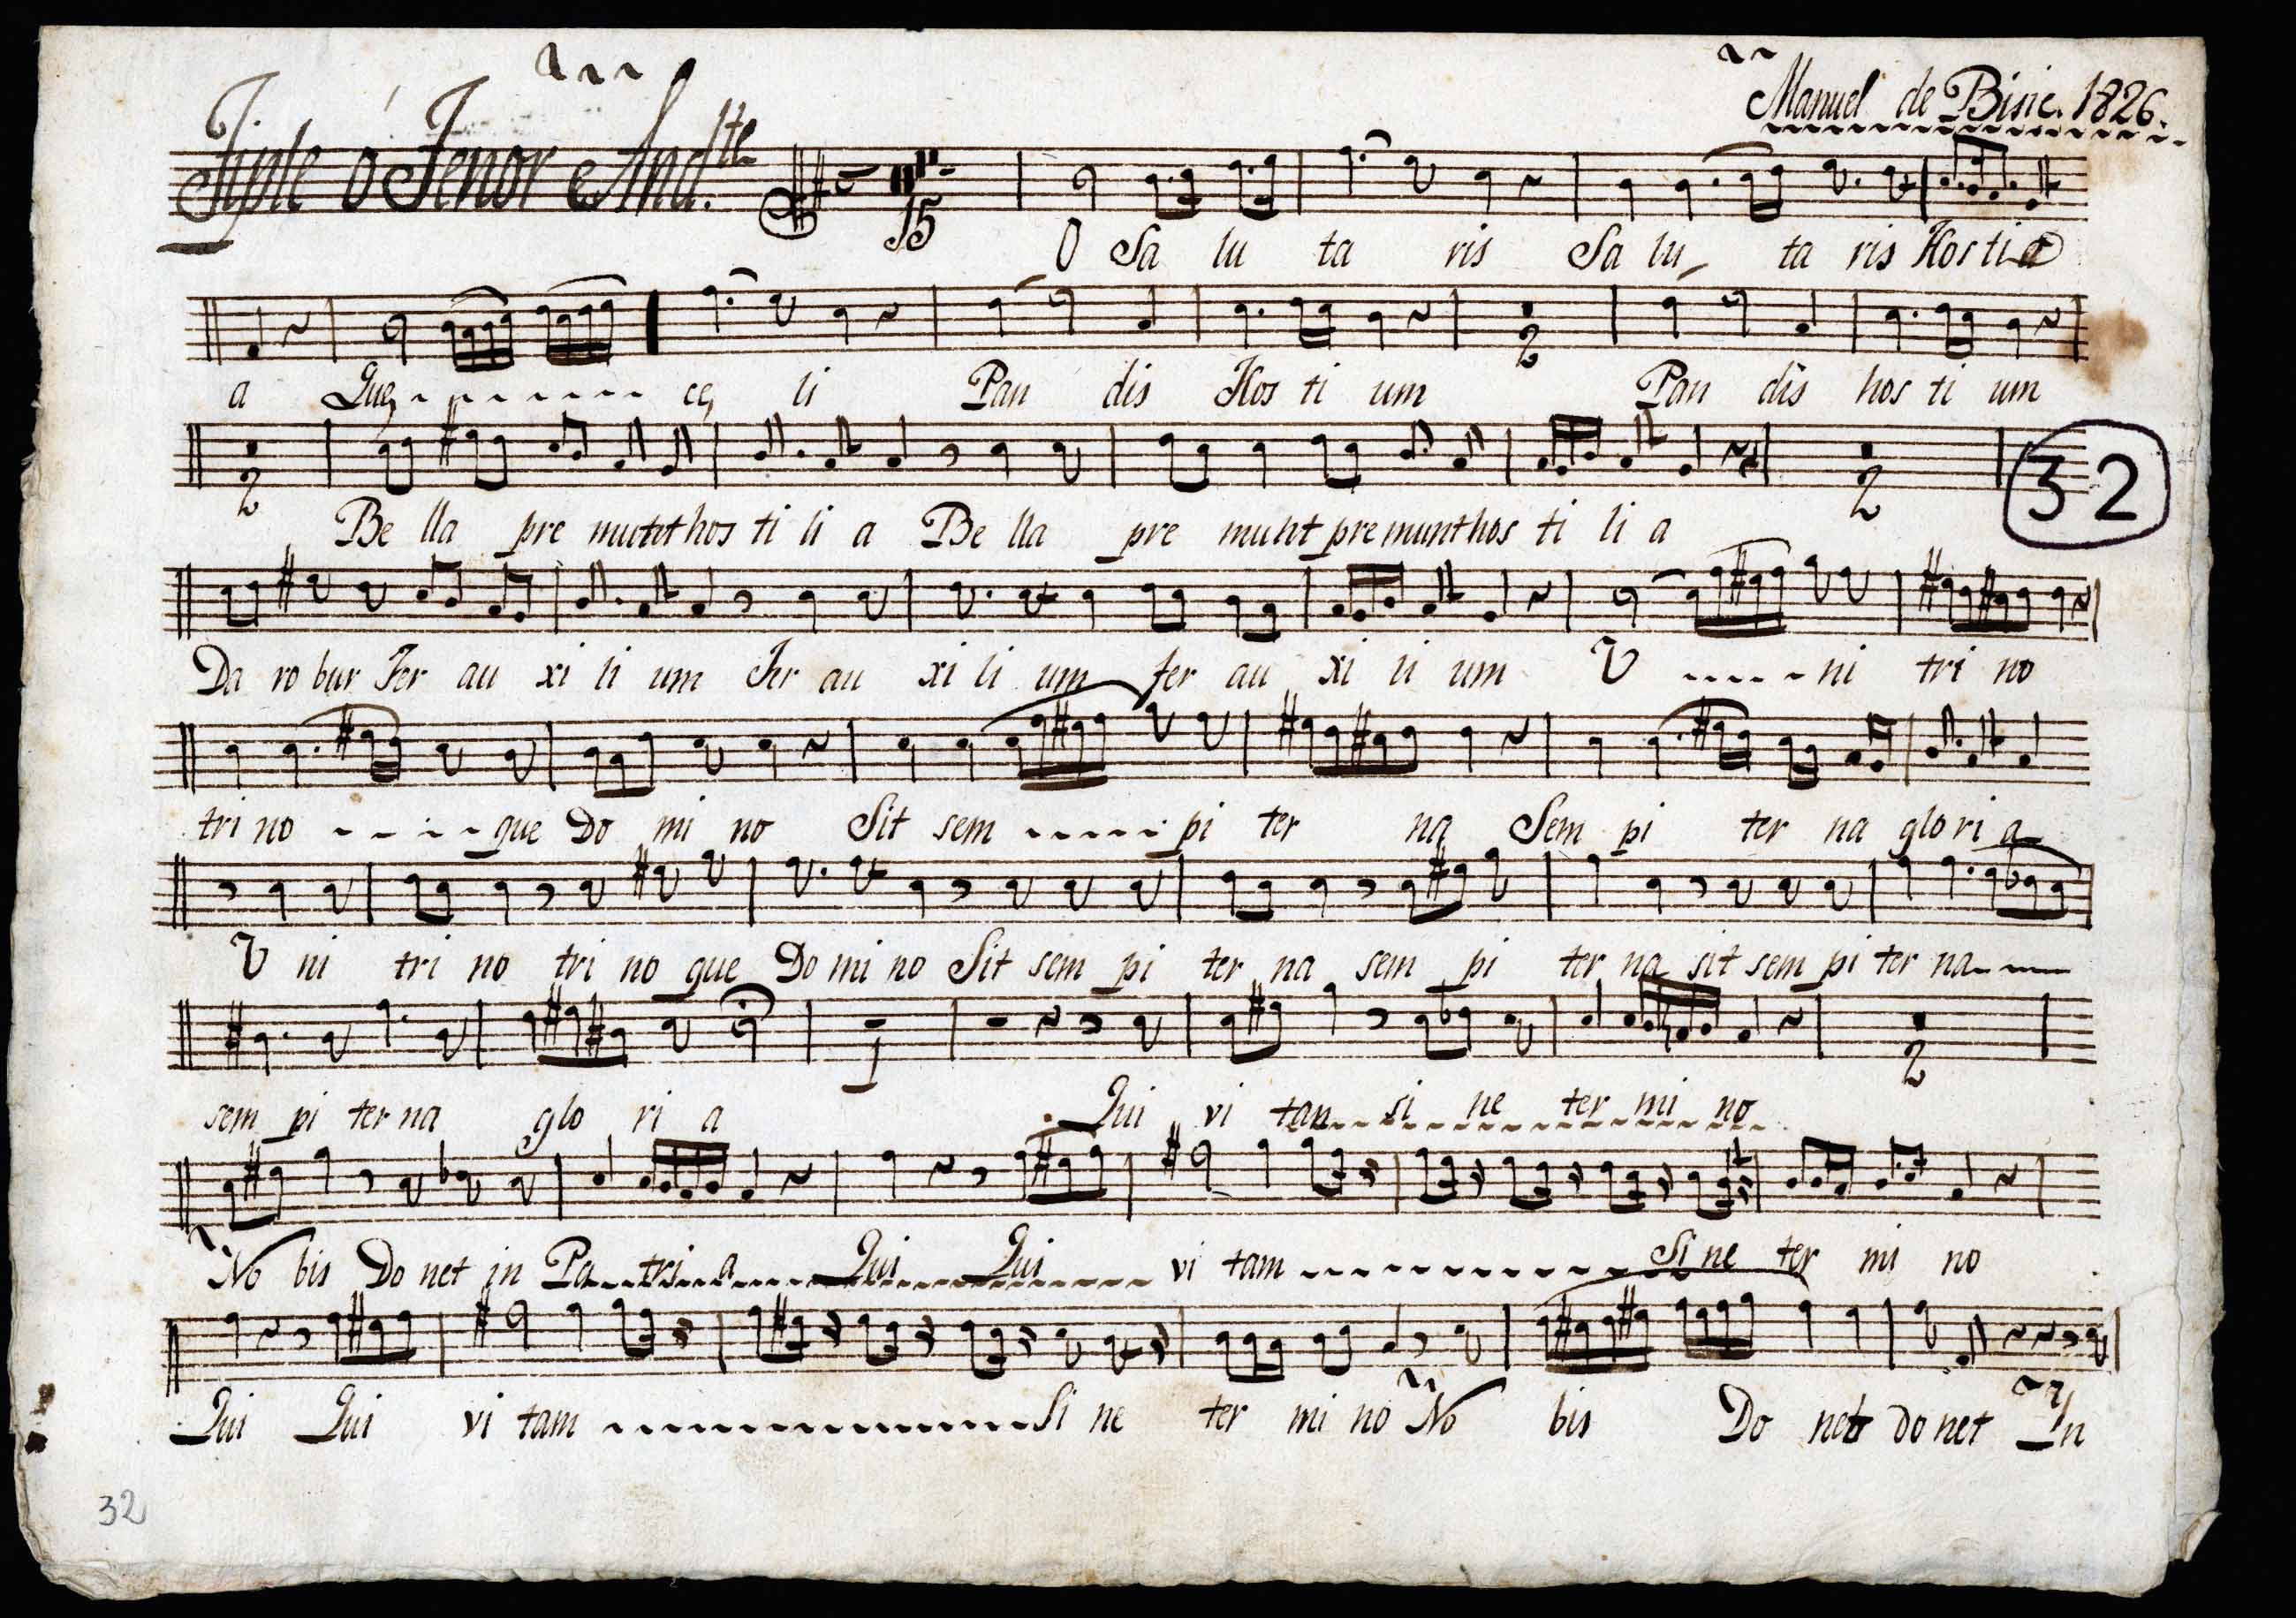 Manuel de Bisie. 1826.
Tiple ó Tenor And.te
15
O Sa lu ta ris Sa lu ta ris Hos ti a
a Que ce li Pan dis Hos ti um Pan dis hos ti um
2
2
2
32
Be lla pre munt hos ti li a Be lla pre munt pre munt hos ti li a
Da ro bur Fer au xi li um Fer au xi li um fer au xi li um V ni tri no
tri no que Do mi no Sit sem pi ter na Sem pi ter na glo ri a
V ni tri no tri no que Do mi no Sit sem pi ter na sem pi ter na sit sem pi ter na
1
2
sem pi ter na glo ri a Qui vi tan si ne ter mi no
No bis Do net in Pa tri a Qui Qui vi tam Si ne ter mi no
Qui Qui vi tam Si ne ter mi no No bis Do net do net In
32